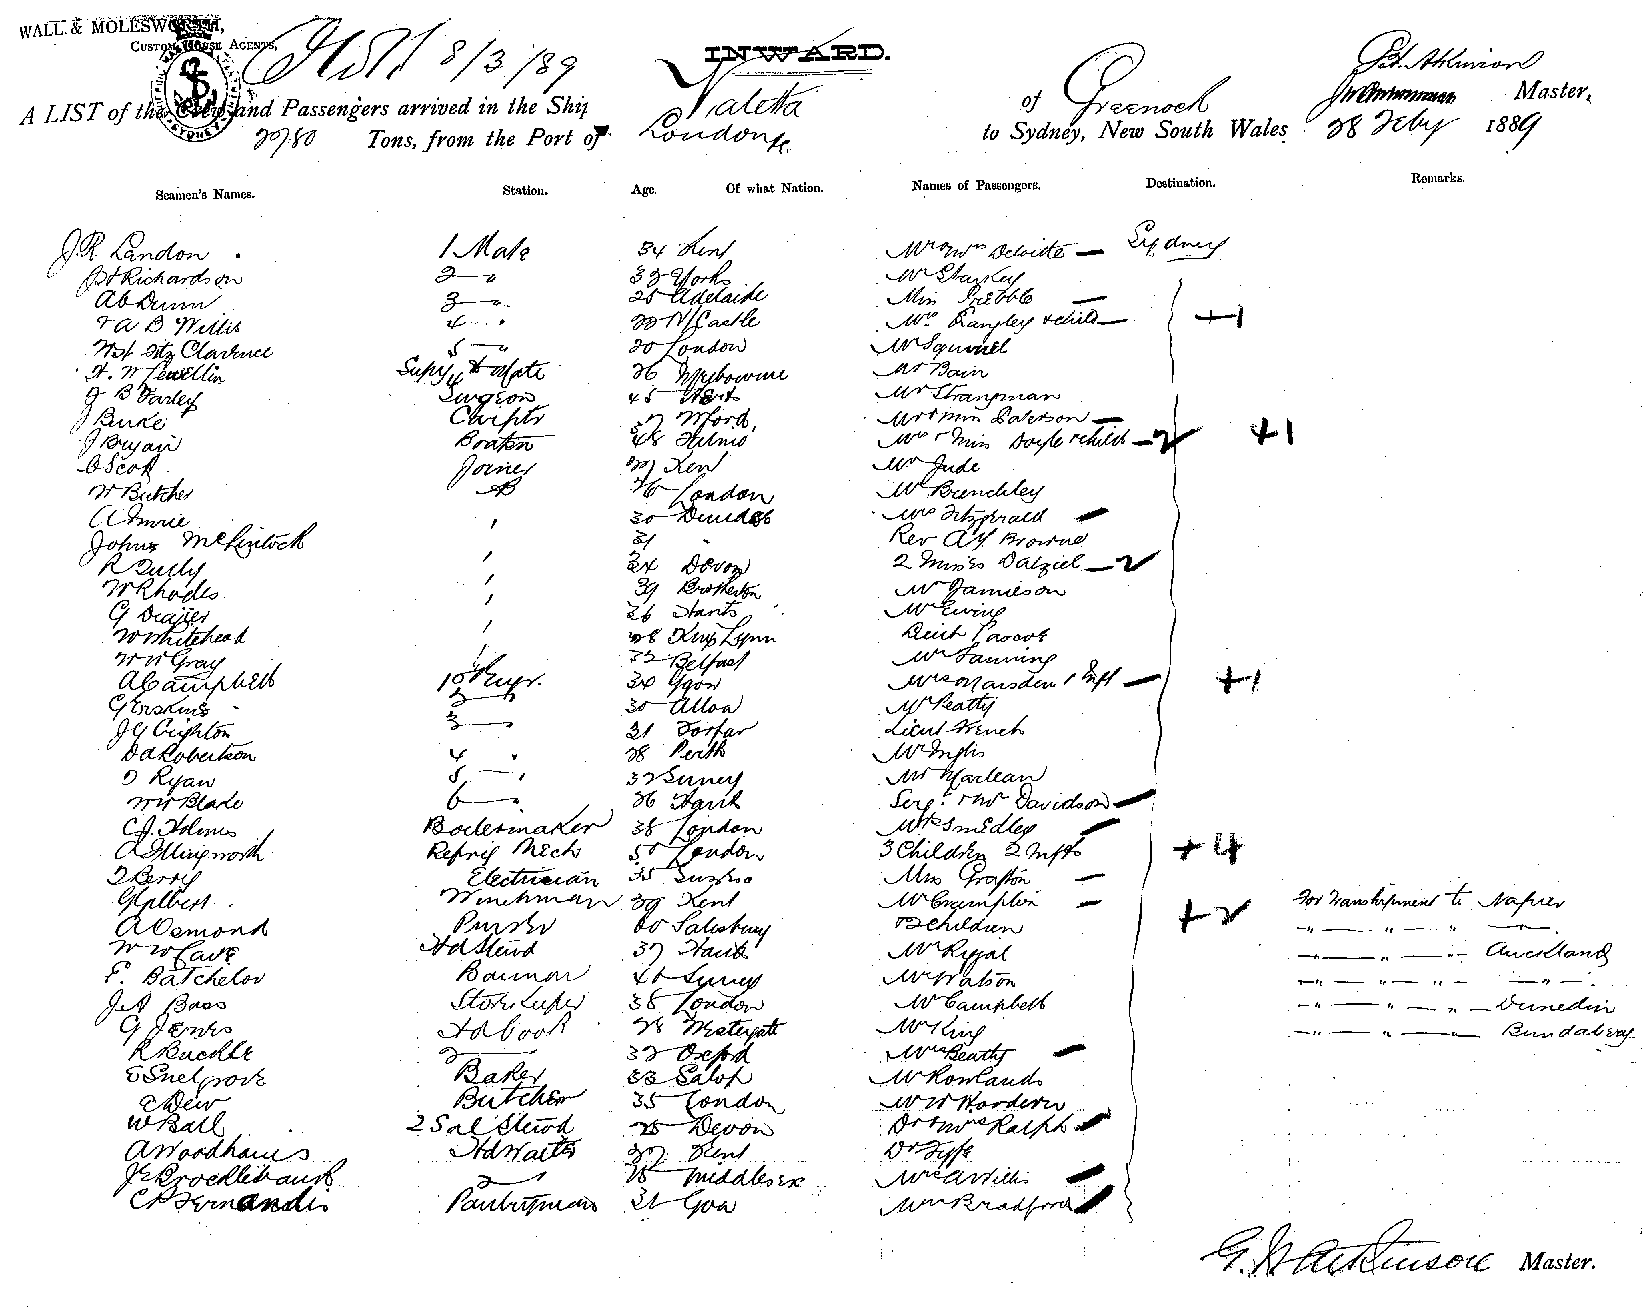 WALL & MOLESWORTH,
CUSTOM HOUSE AGENTS,
8/3/89
INWARD.
A LIST of the Crew and Passengers arrived in the Ship Valetta of Greenock Master,
Tons, from the Port of London to Sydney, New South Wales 28 Feby 1889
Seamen's Names. Station. Age. Of what Nation. Names of Passengers. Destination. Remarks.
J R Landon 1 Mate 34 Kent Mr Mrs Deloitte — Sydney
Richardson 2 — " York Mr Starkey
Dunn 3 — " 25 Adelaide Miss
A B Willis 4 " N/Castle Mrs Langley & child — +1
Fitz Clarence 5 — " 20 London Mr Squirrel
Lewellin Supy 4 Mate 26 Melbourne Mr Bain
J B Farley Surgeon 45 Mr Strangman
J Burke Carptr Mr & Miss Paterson —
J Bryan Boatsn 48 Mrs & Miss Doyle & child — 2 +1
Scott Joiner Kent Mr Jude
W Butcher AB 26 London Mr Brenchley
A Imrie " 30 Dundee Mrs Fitzgerald —
John McLintock 31 " Rev A Y Browne
R Tully " 24 Devon 2 Misses Dalziel — 2
W Rhodes " 39 Mr Jamieson
G " 26 Hants Mr Ewing
W Whitehead " 28 Kings Lynn Lieut Pascoe
W W Gray 32 Belfast Mr Fanning
A Campbell 1st Engr. 34 Ggow Mrs Marsden 1 Inft — +1
G Erskine 2 — " 30 Alloa Mr Beatty
J G Crighton 3 — " 31 Forfar Lieut French
D A Robertson 4 " 28 Perth Mr Inglis
Ryan 5 — " 32 Surrey Mr Maclean
W W Blade 6 — " 26 Hants Sergt & Mrs Davidson —
C J Holmes Boilermaker 38 London Mrs Smedley —
A Illingworth Refrig Mech 50 London 3 Children 2 Infts +4
Berry Electrician 35 Sussex Miss Grafton —
Gilbert Winchman 39 Kent Mr Crumplin — For Transhipment to Napier
A Osmond Purser 60 Salisbury 2 children +2 " — " — " — " —
W W Cave Hd Stewd 37 Hants Mr Rygal " — " — " Auckland
F. Batchelor Barman 46 Surrey Mr Watson " — " — " — " —
J A Bass Storekeeper 38 London Mr Campbell " — " — " — Dunedin
G Jones Hd Cook 28 Westgate Mr King " — " — " — Bundaberg
R Buckle 2 — 32 Oxford Mrs Beatty —
E Snelgrove Baker 33 Salop Mr Rowlands
C Dew Butcher 35 London Mr W Hordern
W Ball 2 Sal Stewd 25 Devon Dr & Mrs Ralph —
A Woodhams Hd Waiter Kent Dr Fyffe
Brocklebank 2 — 25 Middlesex Mrs A Willis —
Fernandis Pantryman 31 Goa Mrs Bradford —
G. W Atkinson Master.